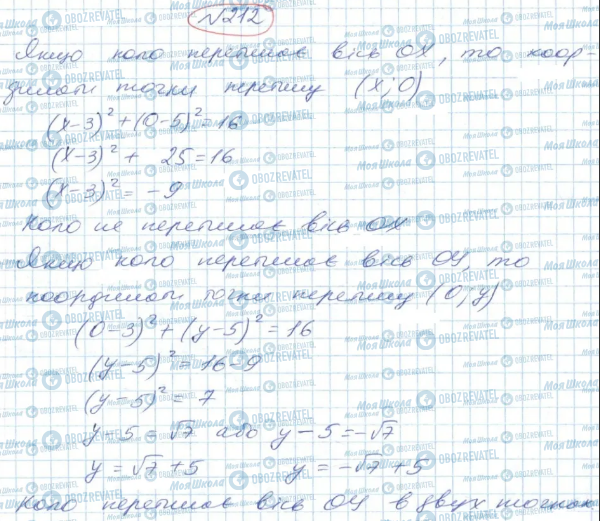 №212
Якщо коло перетинає вісь OX, то коор-
динати точки перетину (x; 0)
(x-3)² + (0-5)² = 16
(x-3)² + 25 = 16
(x-3)² = -9
Коло не перетинає вісь OX
Якщо коло перетинає вісь OY то
координати точки перетину (0; y)
(0-3)² + (y-5)² = 16
(y-5)² = 16-9
(y-5)² = 7
y-5 = √7 або y-5 = -√7
y = √7 + 5 y = -√7 + 5
Коло перетинає вісь OY в двух точках
Моя Школа OBOZREVATEL